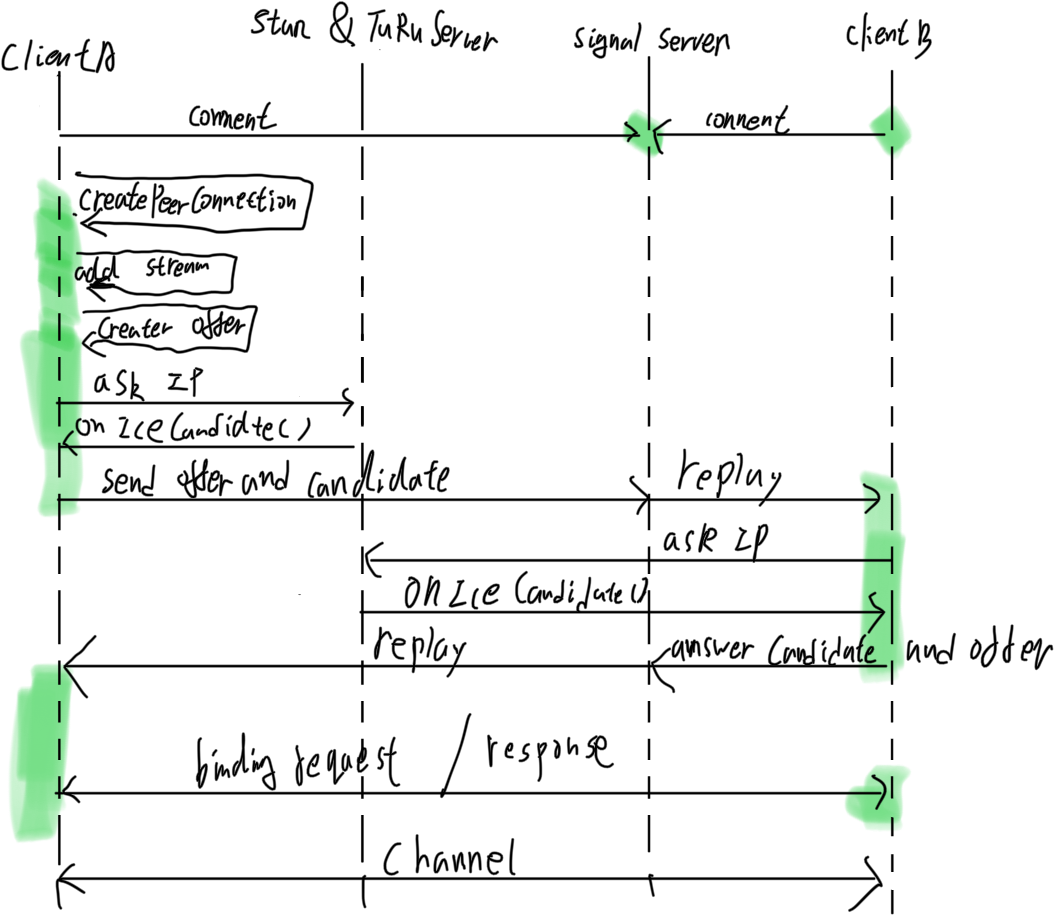 Client A
Stun & TuRu Server
signal server
client B
connent
connent
createPeerConnection
add stream
Creater offer
ask IP
on Ice Candidte()
send offer and candidate
replay
ask IP
on Ice Candidate()
replay
answer Candidate and offer
binding request / response
Channel